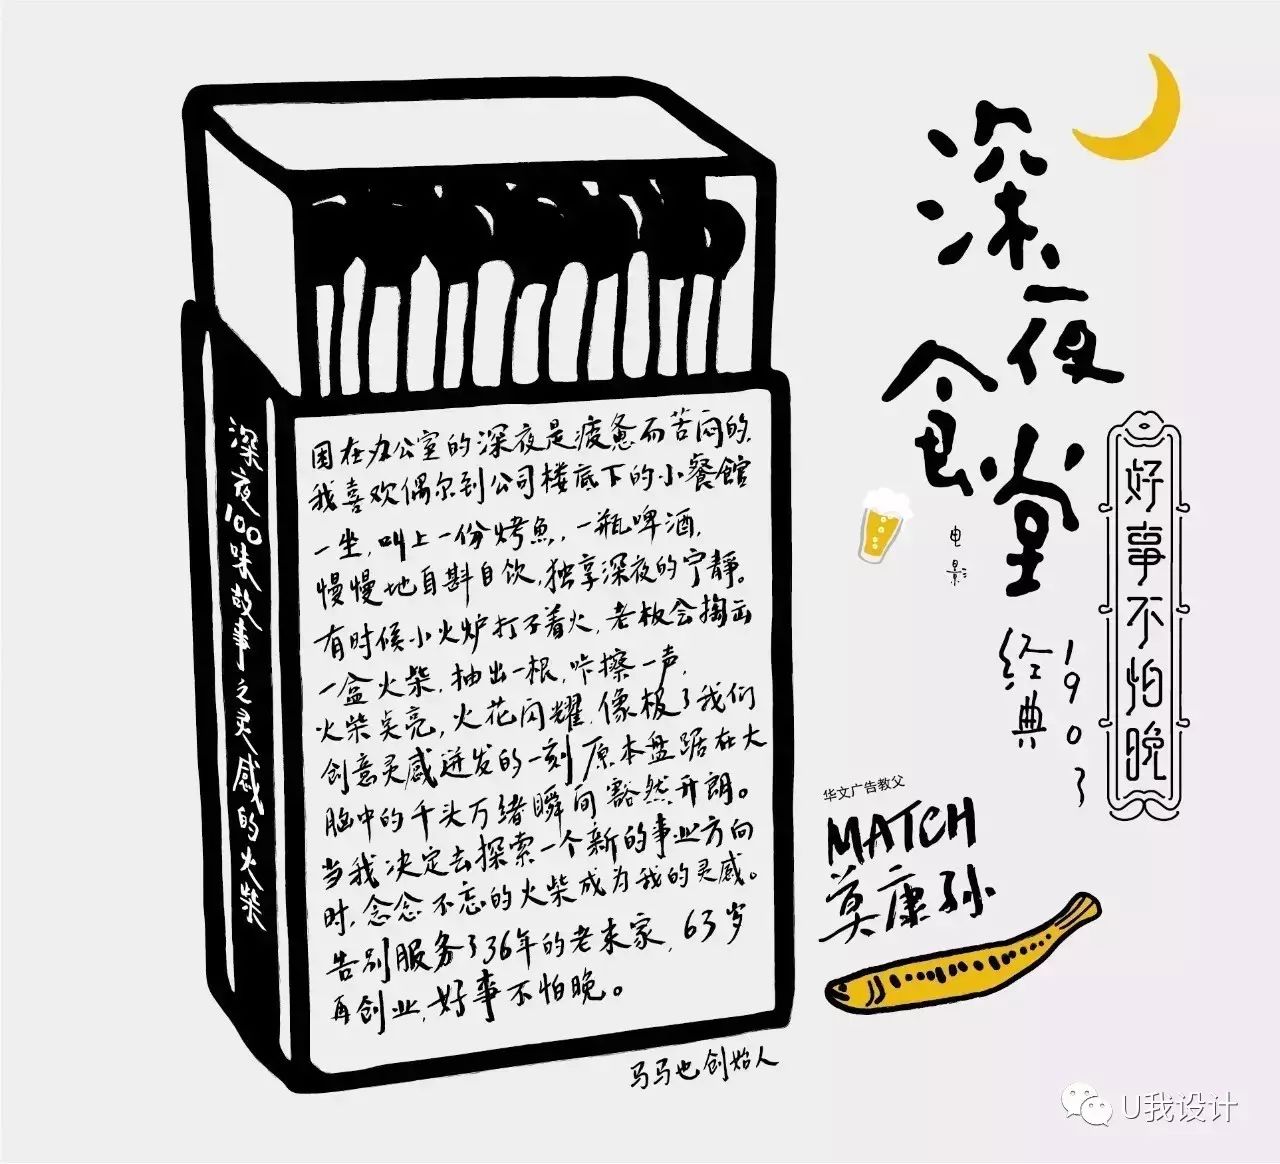 深夜食堂
电影
好事不怕晚
经典1903
华文广告教父
MATCH
莫康孙
深夜100味故事之灵感的火柴
困在办公室的深夜是疲惫而苦闷的,
我喜欢偶尔到公司楼底下的小餐馆
一坐,叫上一份烤鱼,一瓶啤酒,
慢慢地自斟自饮,独享深夜的宁静。
有时候小火炉打不着火,老板会掏出
一盒火柴,抽出一根,咔擦一声,
火柴点亮,火花闪耀,像极了我们
创意灵感迸发的一刻原本盘踞在大
脑中的千头万绪瞬间豁然开朗。
当我决定去探索一个新的事业方向
时,念念不忘的火柴成为我的灵感。
告别服务了36年的老东家,63岁
再创业,好事不怕晚。
马马也创始人
U我设计